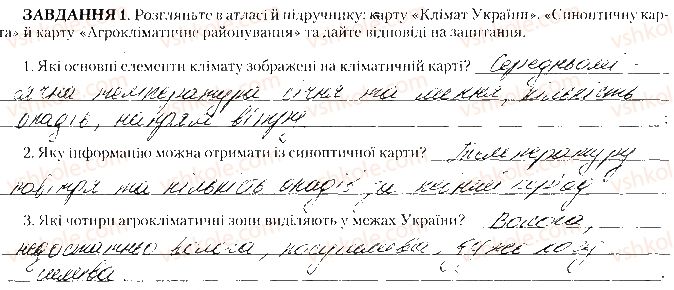 ЗАВДАННЯ 1. Розгляньте в атласі й підручнику: карту «Клімат України». «Синоптичну кар-
та» й карту «Агрокліматичне районування» та дайте відповіді на запитання.
1. Які основні елементи клімату зображені на кліматичній карті? Середньомі -
сячна температура січня та липня, кількість
опадів, напрям вітрів
2. Яку інформацію можна отримати із синоптичної карти? Температуру
повітря та кількість опадів за певний період
3. Які чотири агрокліматичні зони виділяють у межах України? Волога,
недостатньо волога, посушлива, дуже